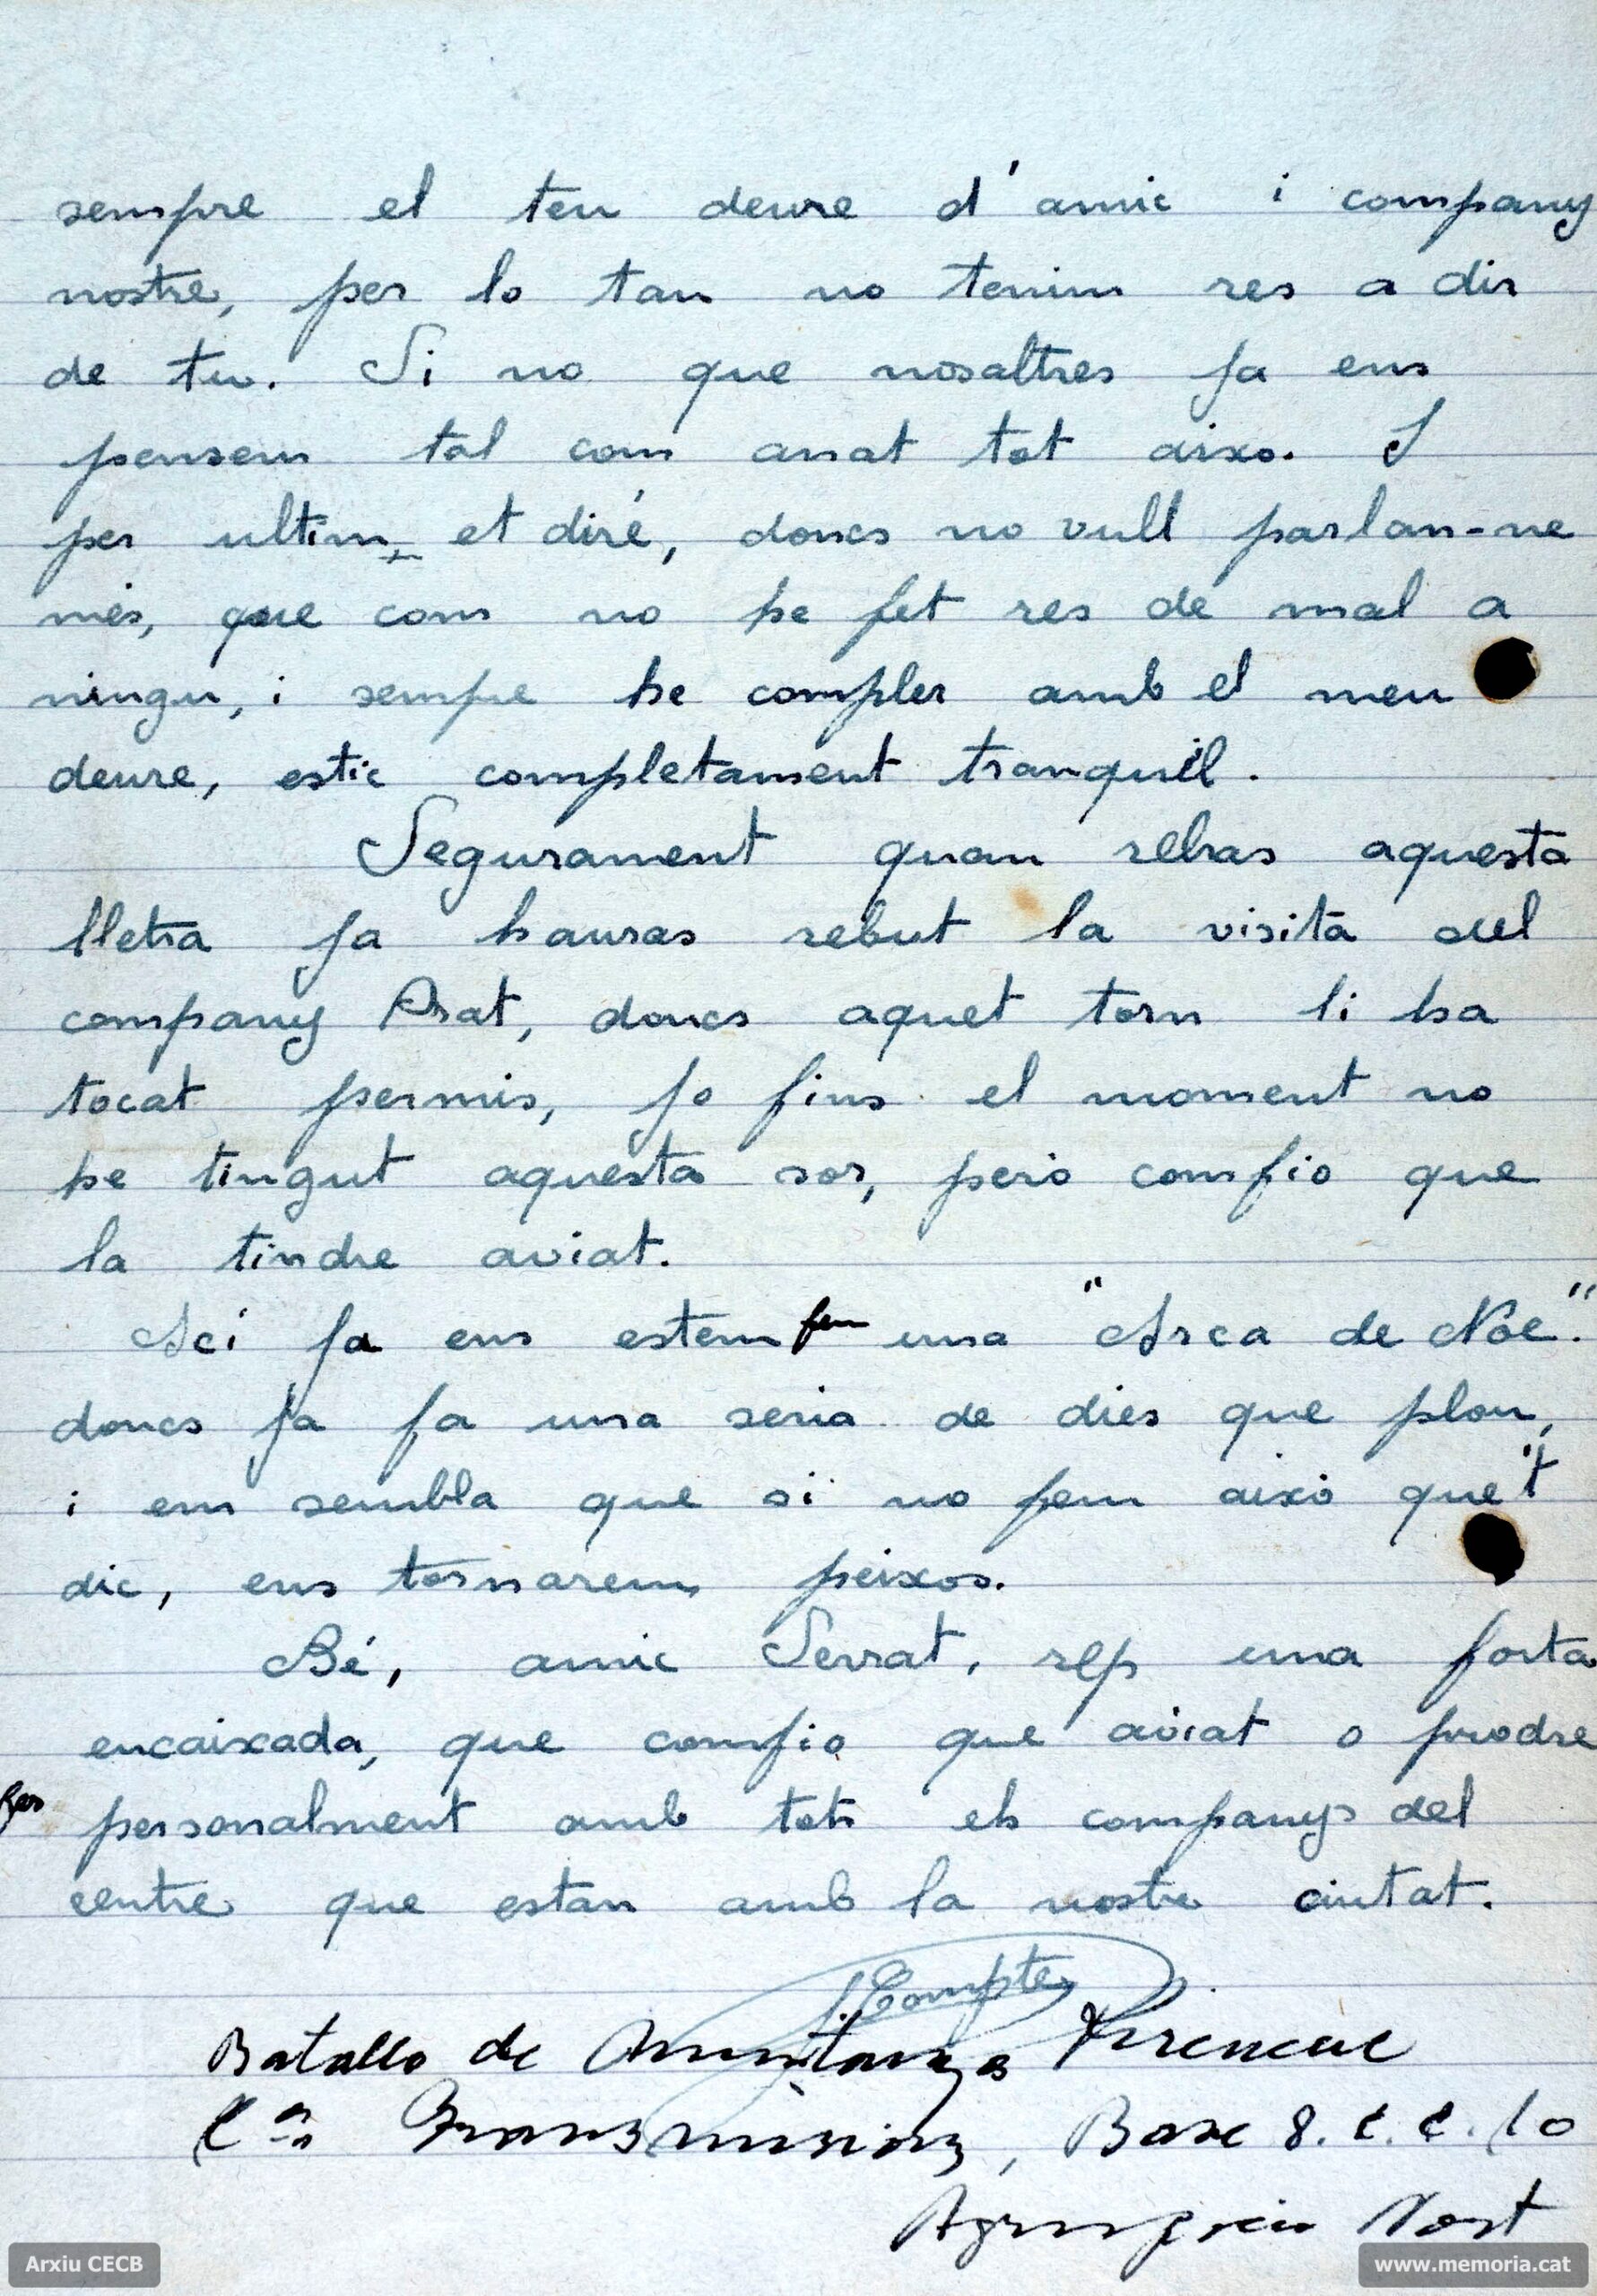 sempre el teu deure d'amic i company
nostre, per lo tan no tenim res a dir
de tu. Si no que nosaltres ja ens
pensem tal com anat tot aixo. I
per ultim, et diré, doncs no vull parlan-ne
més, que com no he fet res de mal a
ningu, i sempre he compler amb el meu
deure, estic completament tranquil.
Segurament quan rebras aquesta
lletra ja hauras rebut la visita del
company Prat, doncs aquet torn li ha
tocat permis, jo fins el moment no
he tingut aquesta sor, peró comfio que
la tindre aviat.
Aci ja ens estem fen una "Arca de Noe".
doncs ja fa una seria de dies que plou,
i em sembla que si no fem aixó que't
dic, ens tornarem peixos.
Bé, amic Serrat, rep una forta
encaixada, que comfio que aviat o prodre
fer personalment amb tots els companys del
centre que estan amb la nostre ciutat.
J. Compte
Batallo de Muntanya Pireneue
Cia Transmisions, Base 8. C. C. 10
Agrupacio Nort
Arxiu CECB
www.memoria.cat